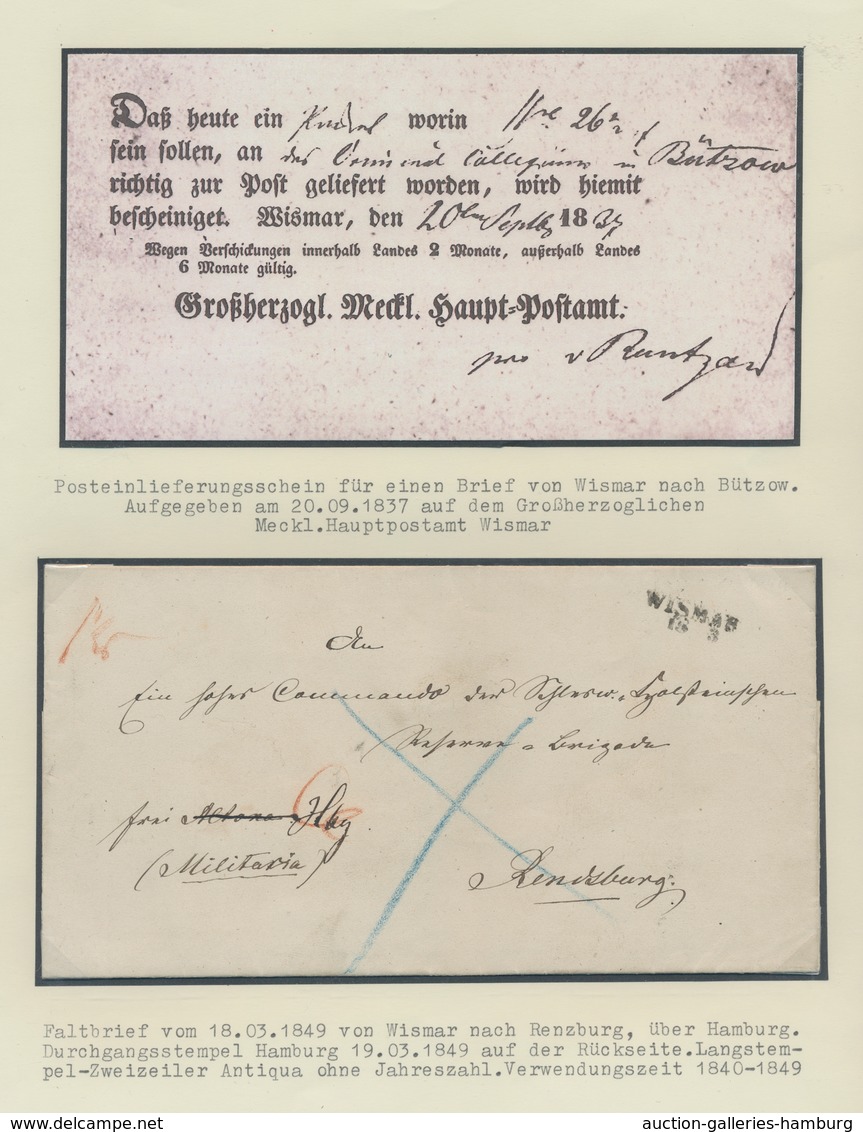 Daß heute ein worin 26
sein sollen, an das Criminal Collegium in Bützow
richtig zur Post geliefert worden, wird hiemit
bescheiniget. Wismar, den 20ten Septbr 1837
Wegen Verschickungen innerhalb Landes 2 Monate, außerhalb Landes
6 Monate gültig.
Großherzogl. Meckl. Haupt-Postamt.
pro v Rantzau
Posteinlieferungsschein für einen Brief von Wismar nach Bützow.
Aufgegeben am 20.09.1837 auf dem Großherzoglichen
Meckl.Hauptpostamt Wismar
WISMAR
18 3
An
Ein hohes Commando der Schlesw. Holsteinschen
Reserve-Brigade
frei Altona Hbg
(Militaria)
Rendsburg.
Faltbrief vom 18.03.1849 von Wismar nach Renzburg, über Hamburg.
Durchgangsstempel Hamburg 19.03.1849 auf der Rückseite.Langstem-
pel-Zweizeiler Antiqua ohne Jahreszahl.Verwendungszeit 1840-1849
www.delcampe.net
auction-galleries-hamburg